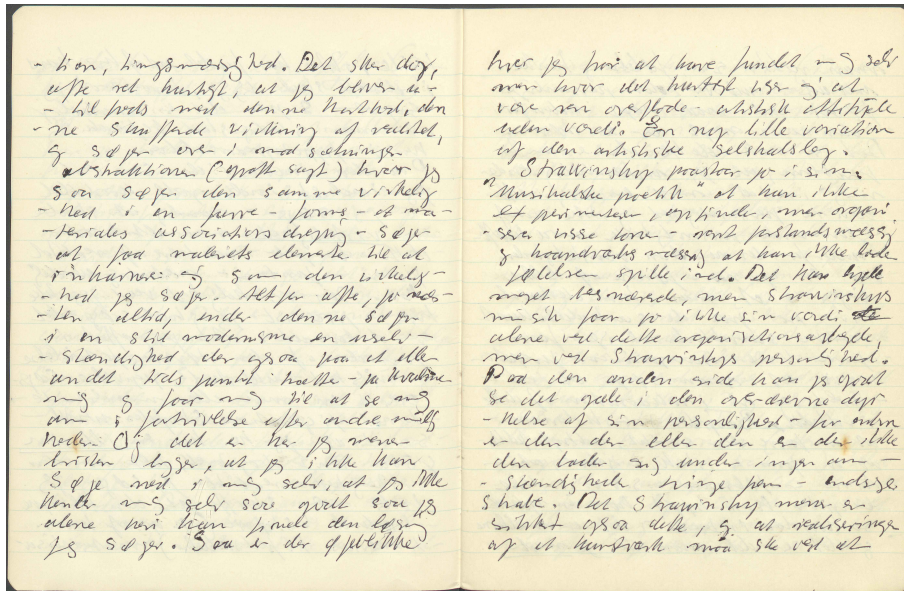 - tion, tingsmæssighed. Det sker dog,
ofte ret hurtigt, at jeg bliver u-
- tilfreds med denne hårdhed, den
- ne skuffende virkning af realitet,
og søger over i modsætningen
abstraktionen (- groft sagt) hvor jeg
saa søger den samme virkelig
- hed i en farve - forms - et ma-
- teriales associations - søger
at faa maleriets elementer til at
som den virkelig-
- hed jeg søger. Alt for ofte, jo næs-
- ten altid, ender denne søgen
i en stil modernisme en uselv-
- stændighed der ogsaa paa et eller
andet tidspunkt trætte - ja kvalme
mig og faar mig til at se mig
om i fortvivlelse efter andre mulig
heder. Og det er her jeg mener
bristen ligger, at jeg ikke kan
søge ned i mig selv, at jeg ikke
kender mig selv saa godt saa jeg
alene heri kan finde den løsning
jeg søger. Saa er der øjeblikke
hvor jeg tror at have fundet mig selv
men hvor det hurtigt viser sig at
være ren overflade - artistisk
uden værdi. En ny lille variation
af den artistiske selskabsleg.
Strawinsky paastaar jo i sin
"Musikalske poetik" at han ikke
eksperimenterer, opfinder, men organi
- serer visse toner - rent forstandsmæssig
og haandværksmæssig at han ikke lader
følelsen spille ind. Det kan lyde
meget besnærende, men Strawinskys
musik faar jo ikke sin værdi
alene ved dette organisationsarbejde,
men ved Strawinskys personlighed.
Paa den anden side kan jeg godt
se det gale i den overdrevne dyr
- kelse af sin personlighed - for enten
er den der eller den er der ikke
den lader sig under ingen om -
- stændigheder tvinge frem - endsige
skabe. Det Strawinsky mener er
sikkert ogsaa dette, og at realiseringen
af et kunstværk maa ske ved at